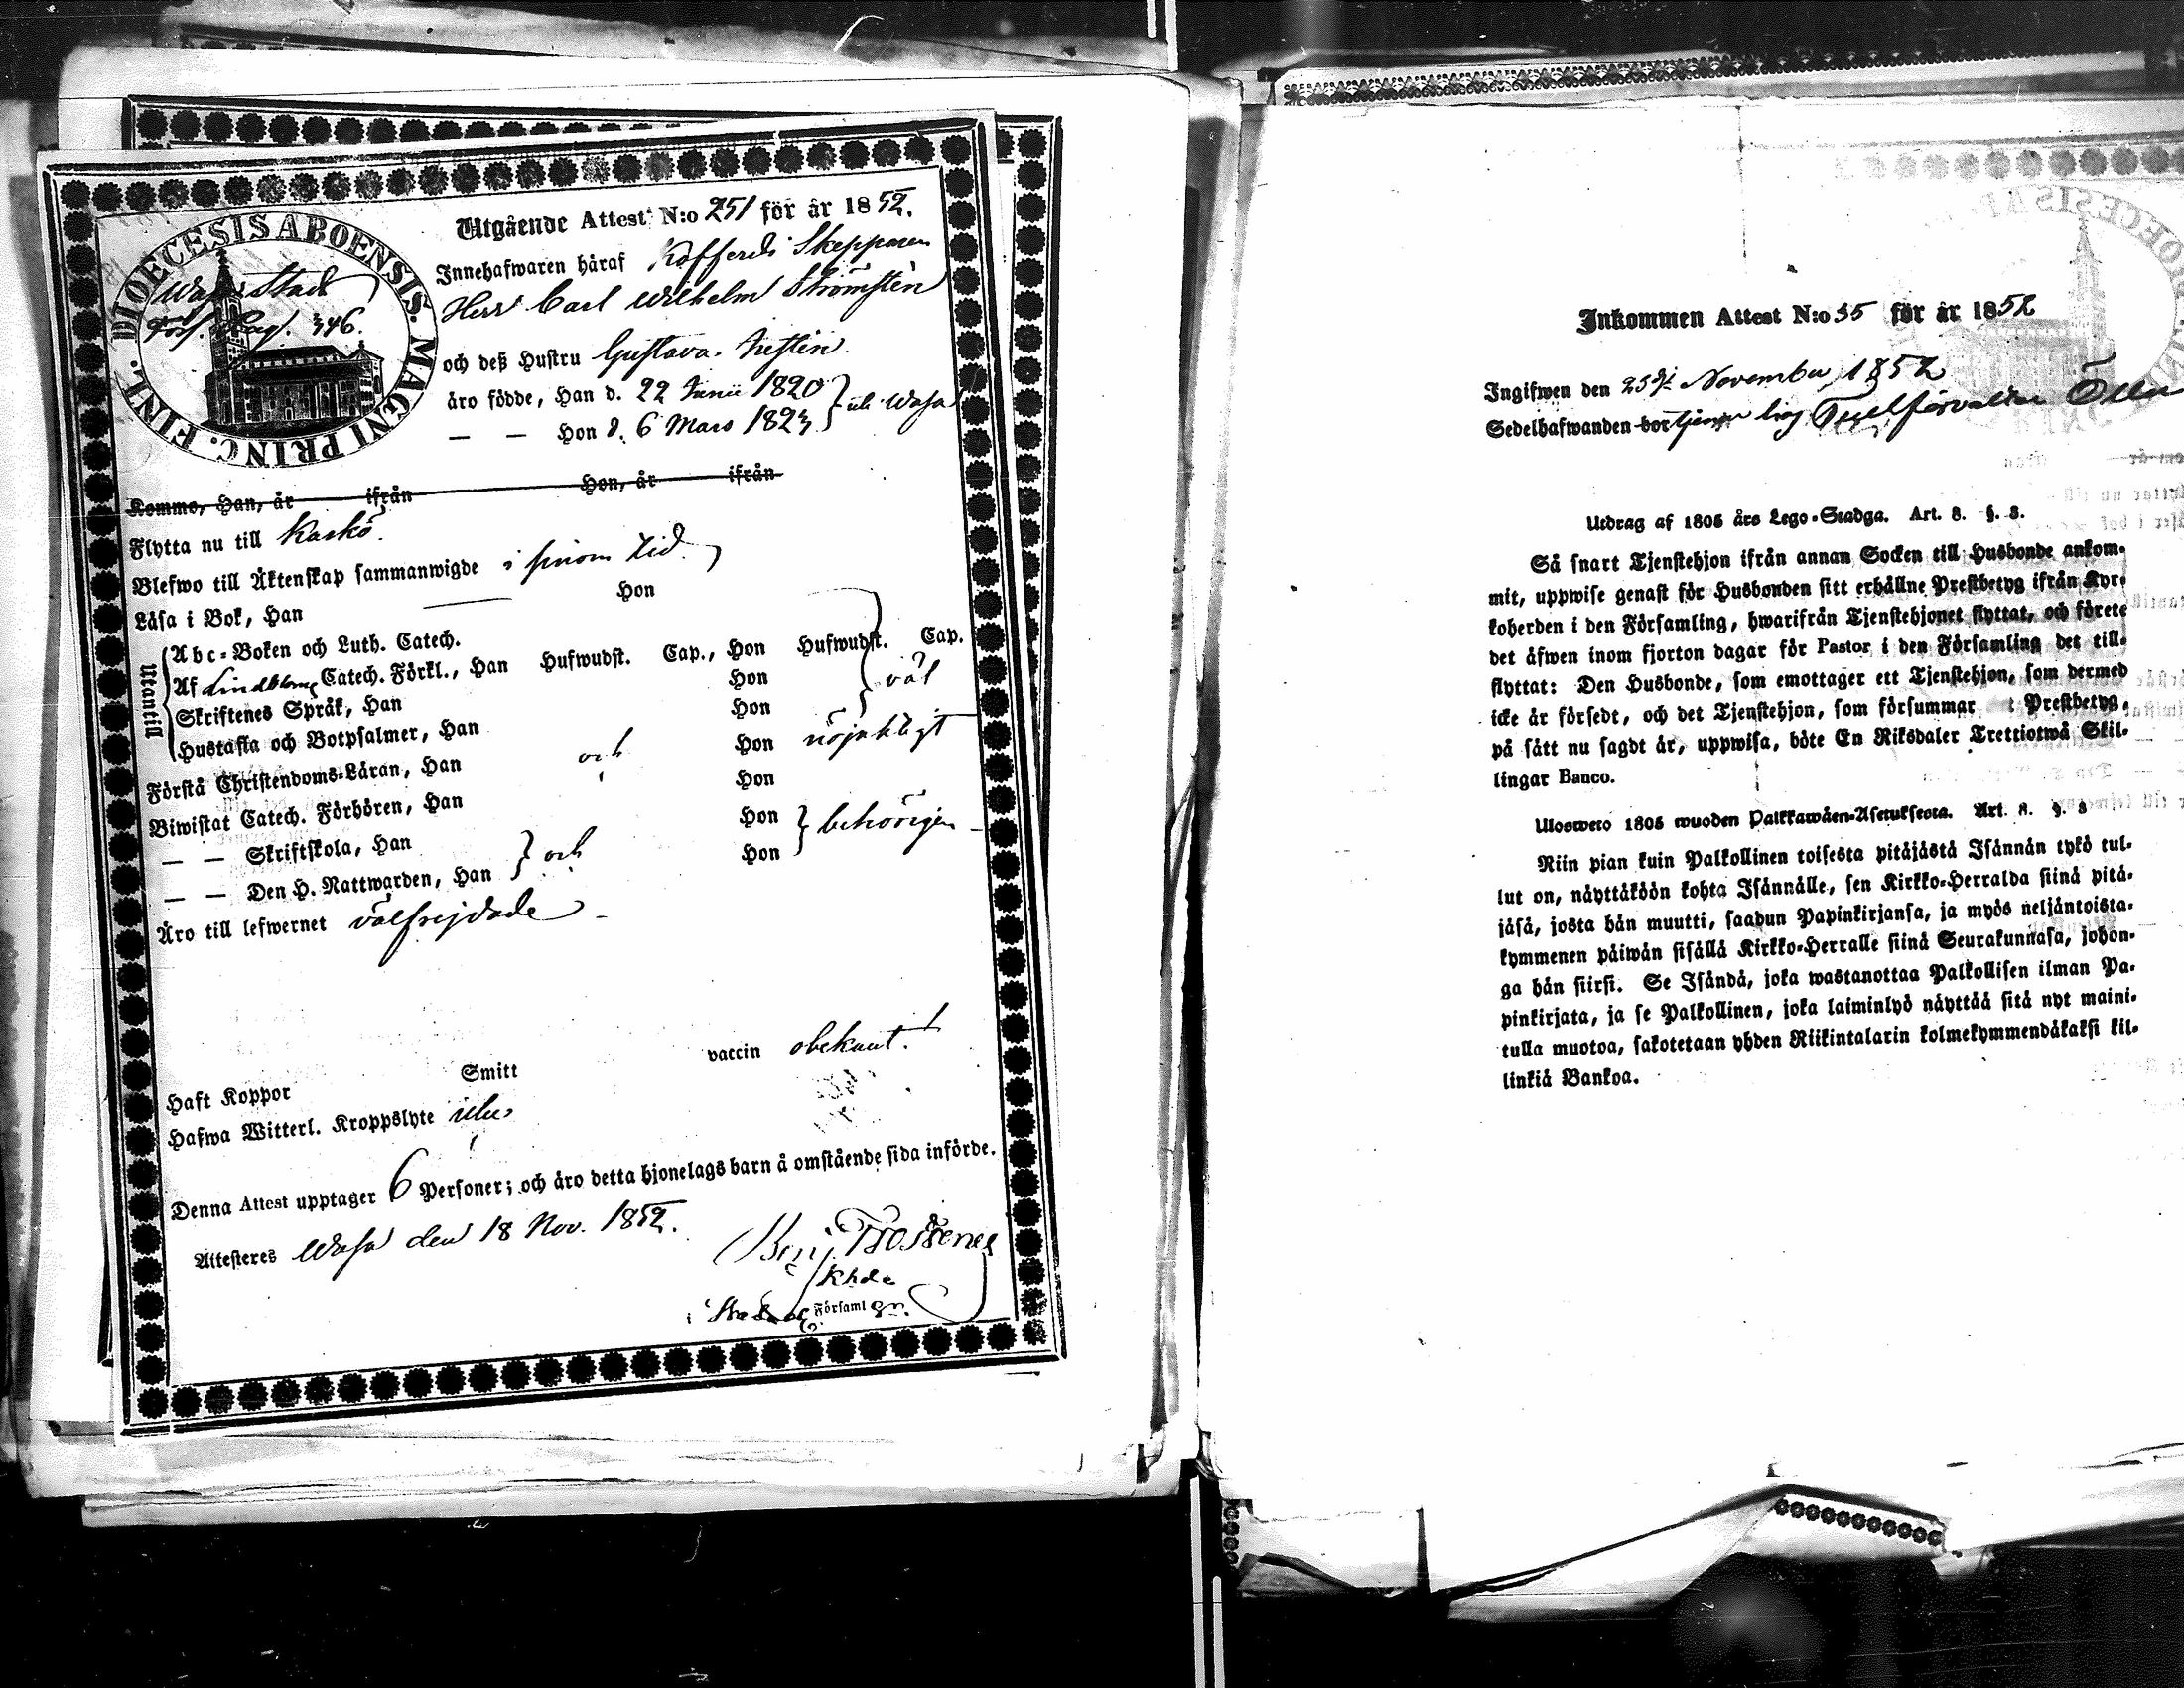 DIOECESIS ABOENSIS. MAGNI PRINC. FINL.
Wasa Stad
Förs. Pag. 346.
Utgående Attest N:o 251 för år 1852.
Innehafwaren häraf Kofferdi Skepparen
Herr Carl Wilhelm Strömstén
och deß Hustru Gustava
äro födde, Han d. 22 Junii 1820
— — Hon d. 6 Mars 1823 } uti Wasa
Komme, Han, år ifrån Hon, år ifrån
Flytta nu till Kaskö.
Blefwo till Äktenskap sammanwigde i sinom tid.
Läsa i Bok, Han Hon
Utantill
Abc-Boken och Luth. Catech.
Af Lindbloms Catech. Förkl., Han Hufwudst. Cap., Hon Hufwudst. Cap.
Skriftenes Språk, Han Hon väl
Hustafla och Botpsalmer, Han Hon
Förstå Christendoms-Läran, Han och Hon nöjaktigt
Biwistat Catech. Förhören, Han Hon
— — Skriftskola, Han Hon
— — Den H. Nattwarden, Han } och Hon } behörigen
Äro till lefwernet välfrejdade
Haft Koppor Smitt vaccin obekant.
Hafwa Witterl. Kroppslyte
Denna Attest upptager 6 Personer; och äro detta hjonelags barn å omstående sida införde.
Attesteres Wasa den 18 Nov. 1852.
Benj.
Khde
i Församl
Inkommen Attest N:o 35 för år 1852
Ingifwen den 23 November 1852
Sedelhafwanden bor tjenar hos Tullförvaltar
Utdrag af 1805 års Lego-Stadga. Art. 8. §. 8.
Så snart Tjenstehjon ifrån annan Socken till Husbonde ankom-
mit, uppwise genast för Husbonden sitt erhållne Prestbetyg ifrån Kyr-
koherden i den Församling, hwarifrån Tjenstehjonet flyttat, och förete
det äfwen inom fjorton dagar för Pastor i den Församling det till-
flyttat: Den Husbonde, som emottager ett Tjenstehjon, som dermed
icke är försedt, och det Tjenstehjon, som försummar t Prestbetyg,
på sätt nu sagdt är, uppwisa, böte En Riksdaler Trettiotwå Skil-
lingar Banco.
Ulosweto 1805 wuoden Palkkawäen-Asetuksesta. Art. 8. §. 8
Niin pian kuin Palkollinen toisesta pitäjästä Isännän tykö tul-
lut on, näyttäköön kohta Isännälle, sen Kirkko-Herralda siinä pitä-
jäsä, josta hän muutti, saadun Papinkirjansa, ja myös neljäntoista-
kymmenen päiwän sisällä Kirkko-Herralle siinä Seurakunnasa, johon-
ga hän siirsi. Se Isändä, joka wastanottaa Palkollisen ilman Pa-
pinkirjata, ja se Palkollinen, joka laiminlyö näyttää sitä nyt maini-
tulla muotoa, sakotetaan yhden Riikintalarin kolmekymmendäkaksi kil-
linkiä Bankoa.